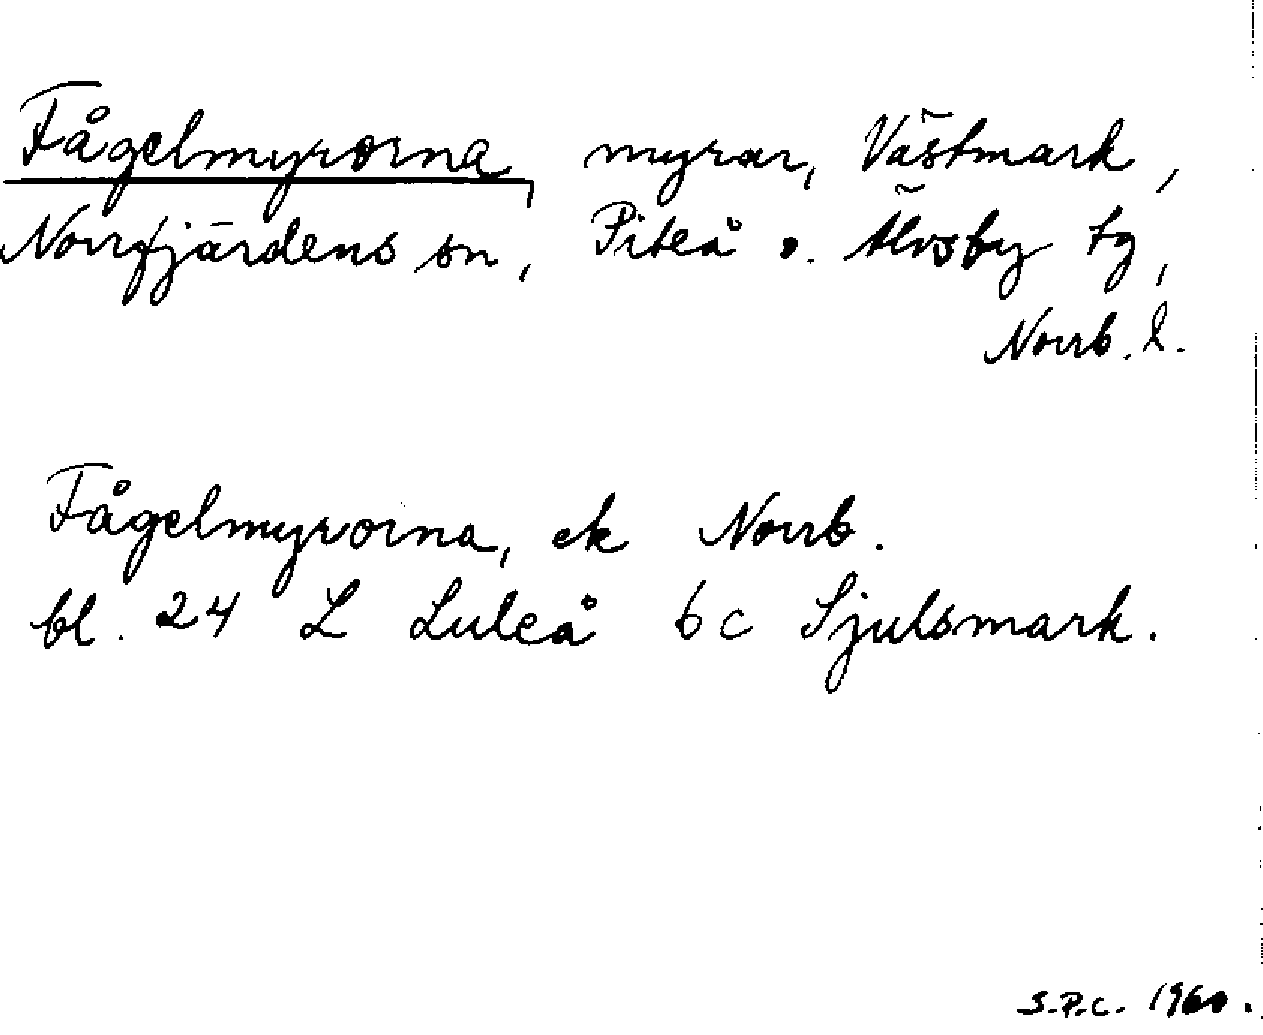 Fågelmyrorna, myrar, Västmark,
Norrfjärdens sn, Piteå o. Älvsby tg,
Norrb. l.
Fågelmyrorna, ek Norrb.
bl. 24 L Luleå 6 c Sjulsmark.
S.P.C. 1960.